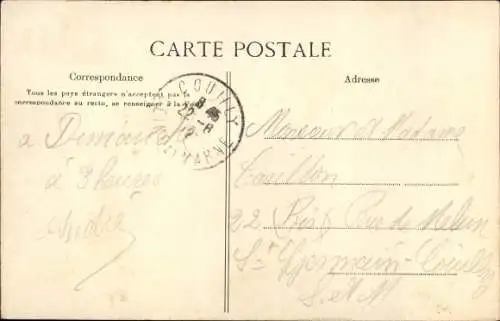 CARTE POSTALE
Correspondance
Tous les pays étrangers n'acceptent pas la
correspondance au recto, se renseigner à la
à
à 3 heures
André
COUILLY
8 45
22 -8
12
ET-MARNE
Adresse
Monsieur et Madame
22 Bis Rue de Melun
St Germain-Couilly
S. et M